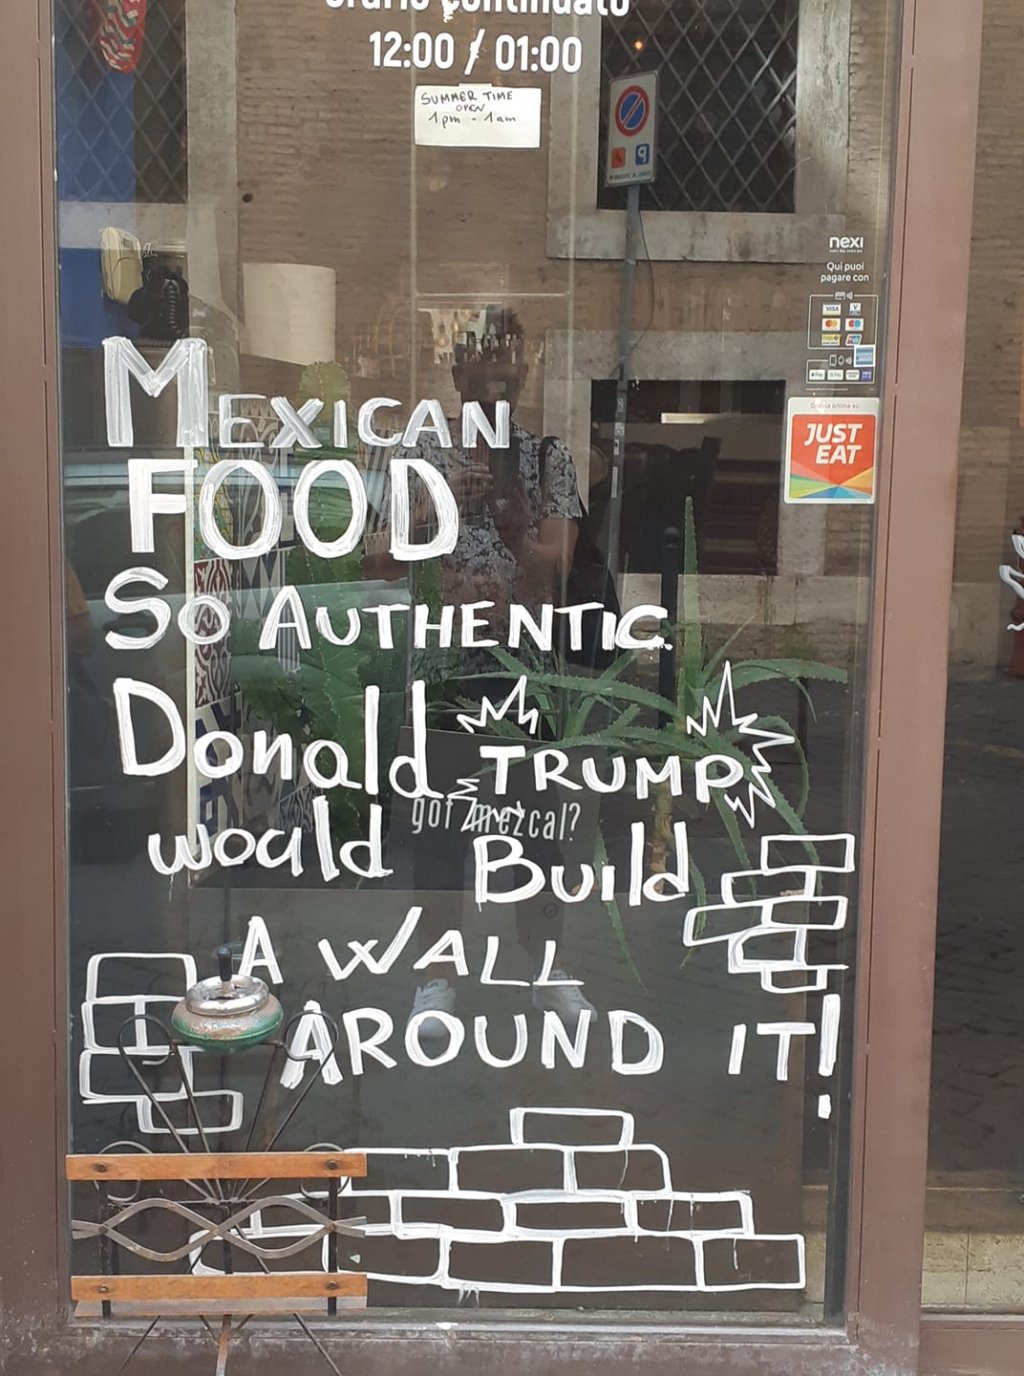 orario continuato
12:00 / 01:00
SUMMER TIME
OPEN
1pm - 1am
nexi
Qui puoi
pagare con
VISA
Pay
Ordina online su
JUST
EAT
MEXICAN
FOOD
SO AUTHENTIC
Donald TRUMP
got mezcal?
would Build
A WALL
AROUND IT!